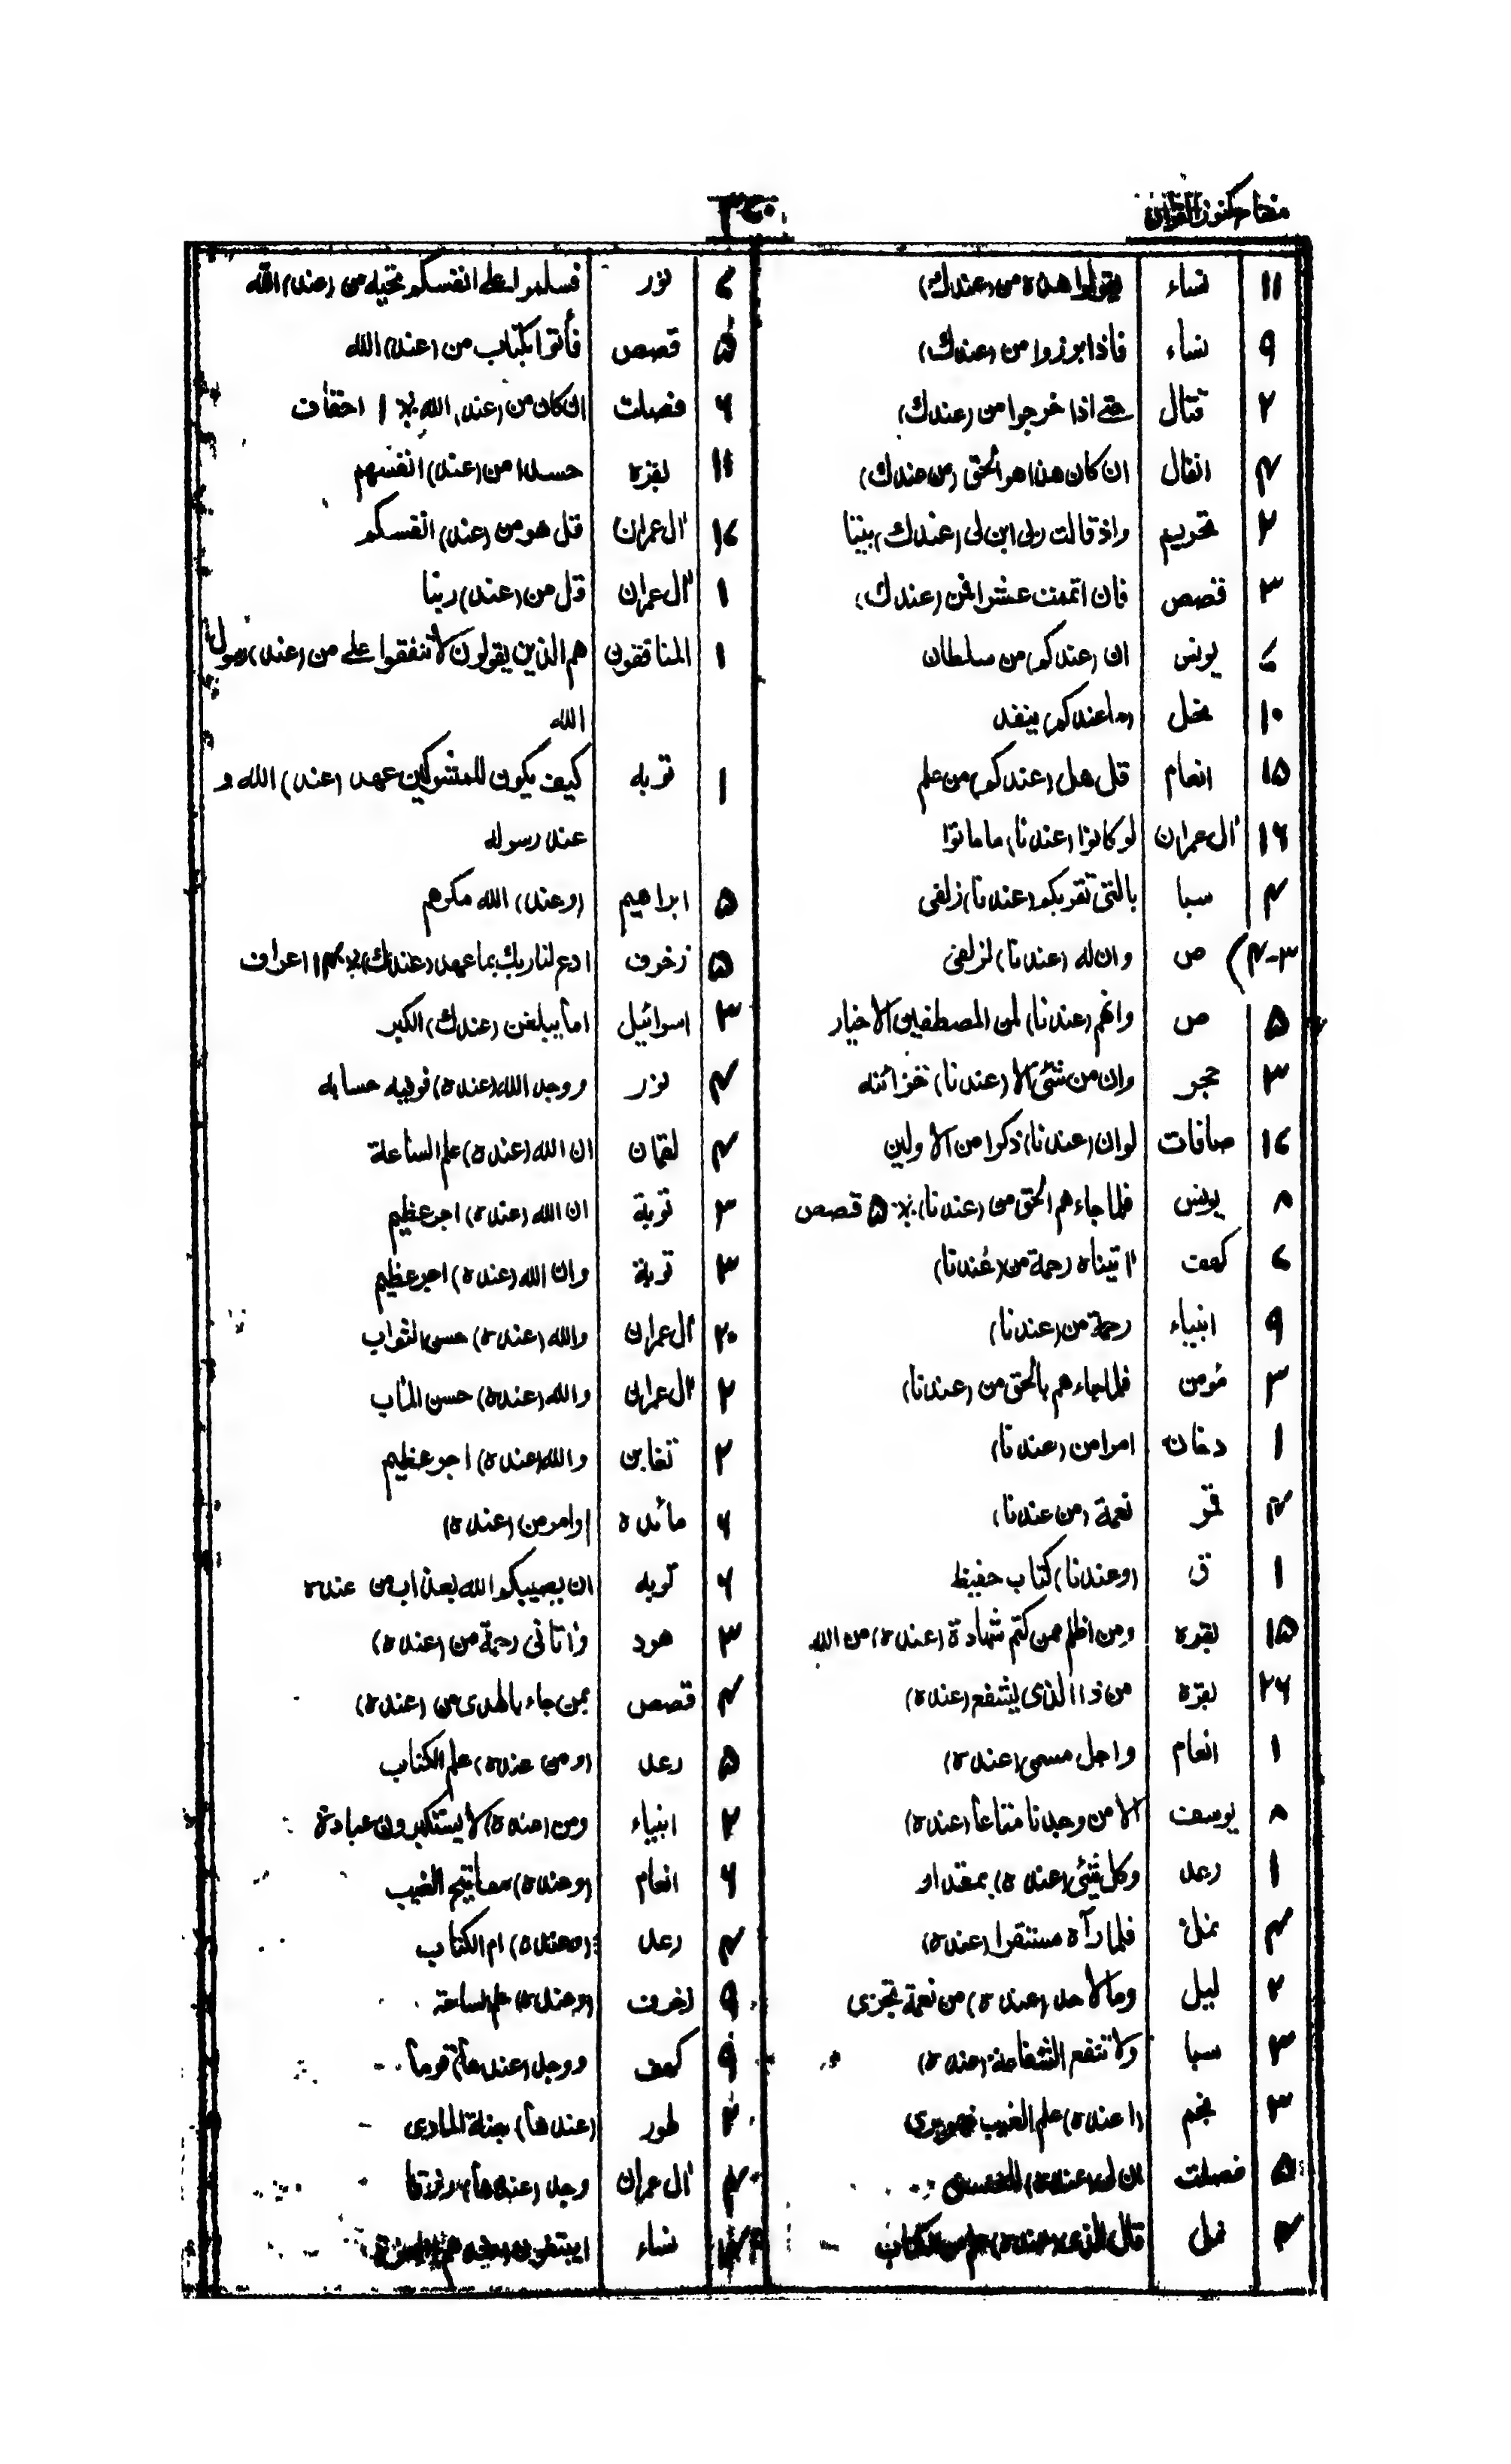 مفتاح كنوز القرآن
۳۶۰
۱۱ نساء يقولوا هذه من (عندك)
۹ نساء فاذا برزوا من (عندك)
۲ قتال حتى اذا خرجوا من (عندك)
۴ انفال ان كان هذا هو الحق (من عندك)
۲ تحريم واذ قالت رب ابن لى (عندك) بيتا
۳ قصص فان اتممت عشرا فمن (عندك)
۷ يونس ان (عندكم) من سلطان
۱۰ نحل (ما عندكم) ينفد
۱۵ انعام قل هل (عندكم) من علم
۱۶ آل عمران لو كانوا (عندنا) ما ماتوا
۴ سبا بالتى تقربكم (عندنا) زلفى
۳-۴ ص وان له (عندنا) لزلفى
۵ ص وانهم (عندنا) لمن المصطفين الاخيار
۳ حجر وان من شئ الا (عندنا) خزائنه
۱۶ صافات لو ان (عندنا) ذكرا من الاولين
۸ يونس فلما جاءهم الحق من (عندنا) ۵ قصص
۶ كهف اتيناه رحمة من (عندنا)
۹ انبياء رحمة من (عندنا)
۳ مؤمن فلما جاءهم بالحق من (عندنا)
۱ دخان امرا من (عندنا)
۴ قمر نعمة (من عندنا)
۱ ق (وعندنا) كتاب حفيظ
۱۵ بقره ومن اظلم ممن كتم شهادة (عنده) من الله
۲۶ بقره من ذا الذى يشفع (عنده)
۱ انعام واجل مسمى (عنده)
۸ يوسف الا من وجدنا متاعنا (عنده)
۱ رعد وكل شئ (عنده) بمقدار
۴ نمل فلما رآه مستقرا (عنده)
۲ ليل وما لاحد (عنده) من نعمة تجزى
۳ سبا ولا تنفع الشفاعة (عنده)
۳ نجم (اعنده) علم الغيب فهو يرى
۵ فصلت ان لى (عنده) للحسنى
۴ نمل قال الذى (عنده) علم من الكتاب
۶ نور فسلموا على انفسكم تحية من (عند) الله
۵ قصص فأتوا بكتاب من (عند) الله
۶ فصلت ان كان من (عند) الله ۱ احقاف
۱۱ بقره حسدا من (عند) انفسهم
۱۶ آل عمران قل هو من (عند) انفسكم
۱ آل عمران كل من (عند) ربنا
۱ المنافقون هم الذين يقولون لا تنفقوا على من (عند) رسول
الله
۱ توبه كيف يكون للمشركين عهد (عند) الله و
عند رسوله
۵ ابراهيم (وعند) الله مكرهم
۵ زخرف ادع لنا ربك بما عهد (عندك) اعراف
۳ اسرائيل اما يبلغن (عندك) الكبر
۴ نور ووجد الله (عنده) فوفيه حسابه
۴ لقمان ان الله (عنده) علم الساعة
۳ توبة ان الله (عنده) اجر عظيم
۳ توبة وان الله (عنده) اجر عظيم
۲۰ آل عمران والله (عنده) حسن الثواب
۲ آل عمران والله (عنده) حسن الماب
۲ تغابن والله (عنده) اجر عظيم
۶ مائده او امر من (عنده)
۶ توبه ان يصيبكم الله بعذاب من عنده
۳ هود واتانى رحمة من (عنده)
۴ قصص بمن جاء بالهدى من (عنده)
۵ رعد (ومن عنده) علم الكتاب
۲ انبياء ومن (عنده) لا يستكبرون عبادة
۶ انعام (وعنده) مفاتيح الغيب
۴ رعد (وعنده) ام الكتاب
۹ زخرف (وعنده) علم الساعة
۹ كهف ووجد (عندها) قوما
۲ طور (عندها) جنة الماوى
۴ آل عمران وجد (عندها) رزقا
نساء ايبتغون